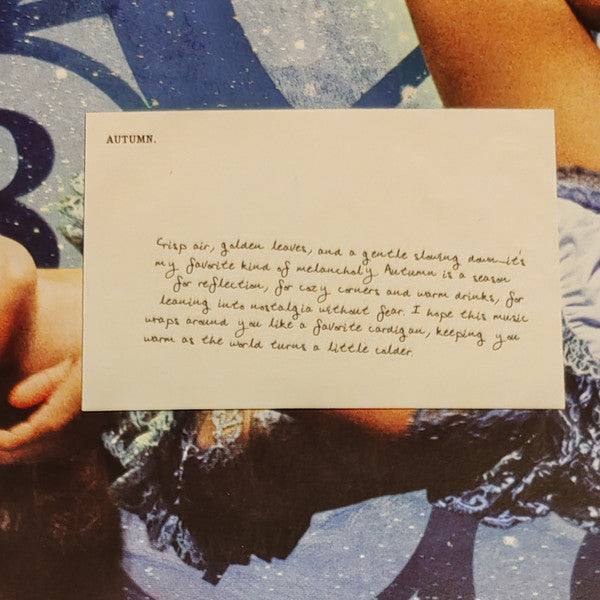 AUTUMN.
Crisp air, golden leaves, and a gentle slowing down—it's
my favorite kind of melancholy. Autumn is a season
for reflection, for cozy corners and warm drinks, for
leaning into nostalgia without fear. I hope this music
wraps around you like a favorite cardigan, keeping you
warm as the world turns a little colder.